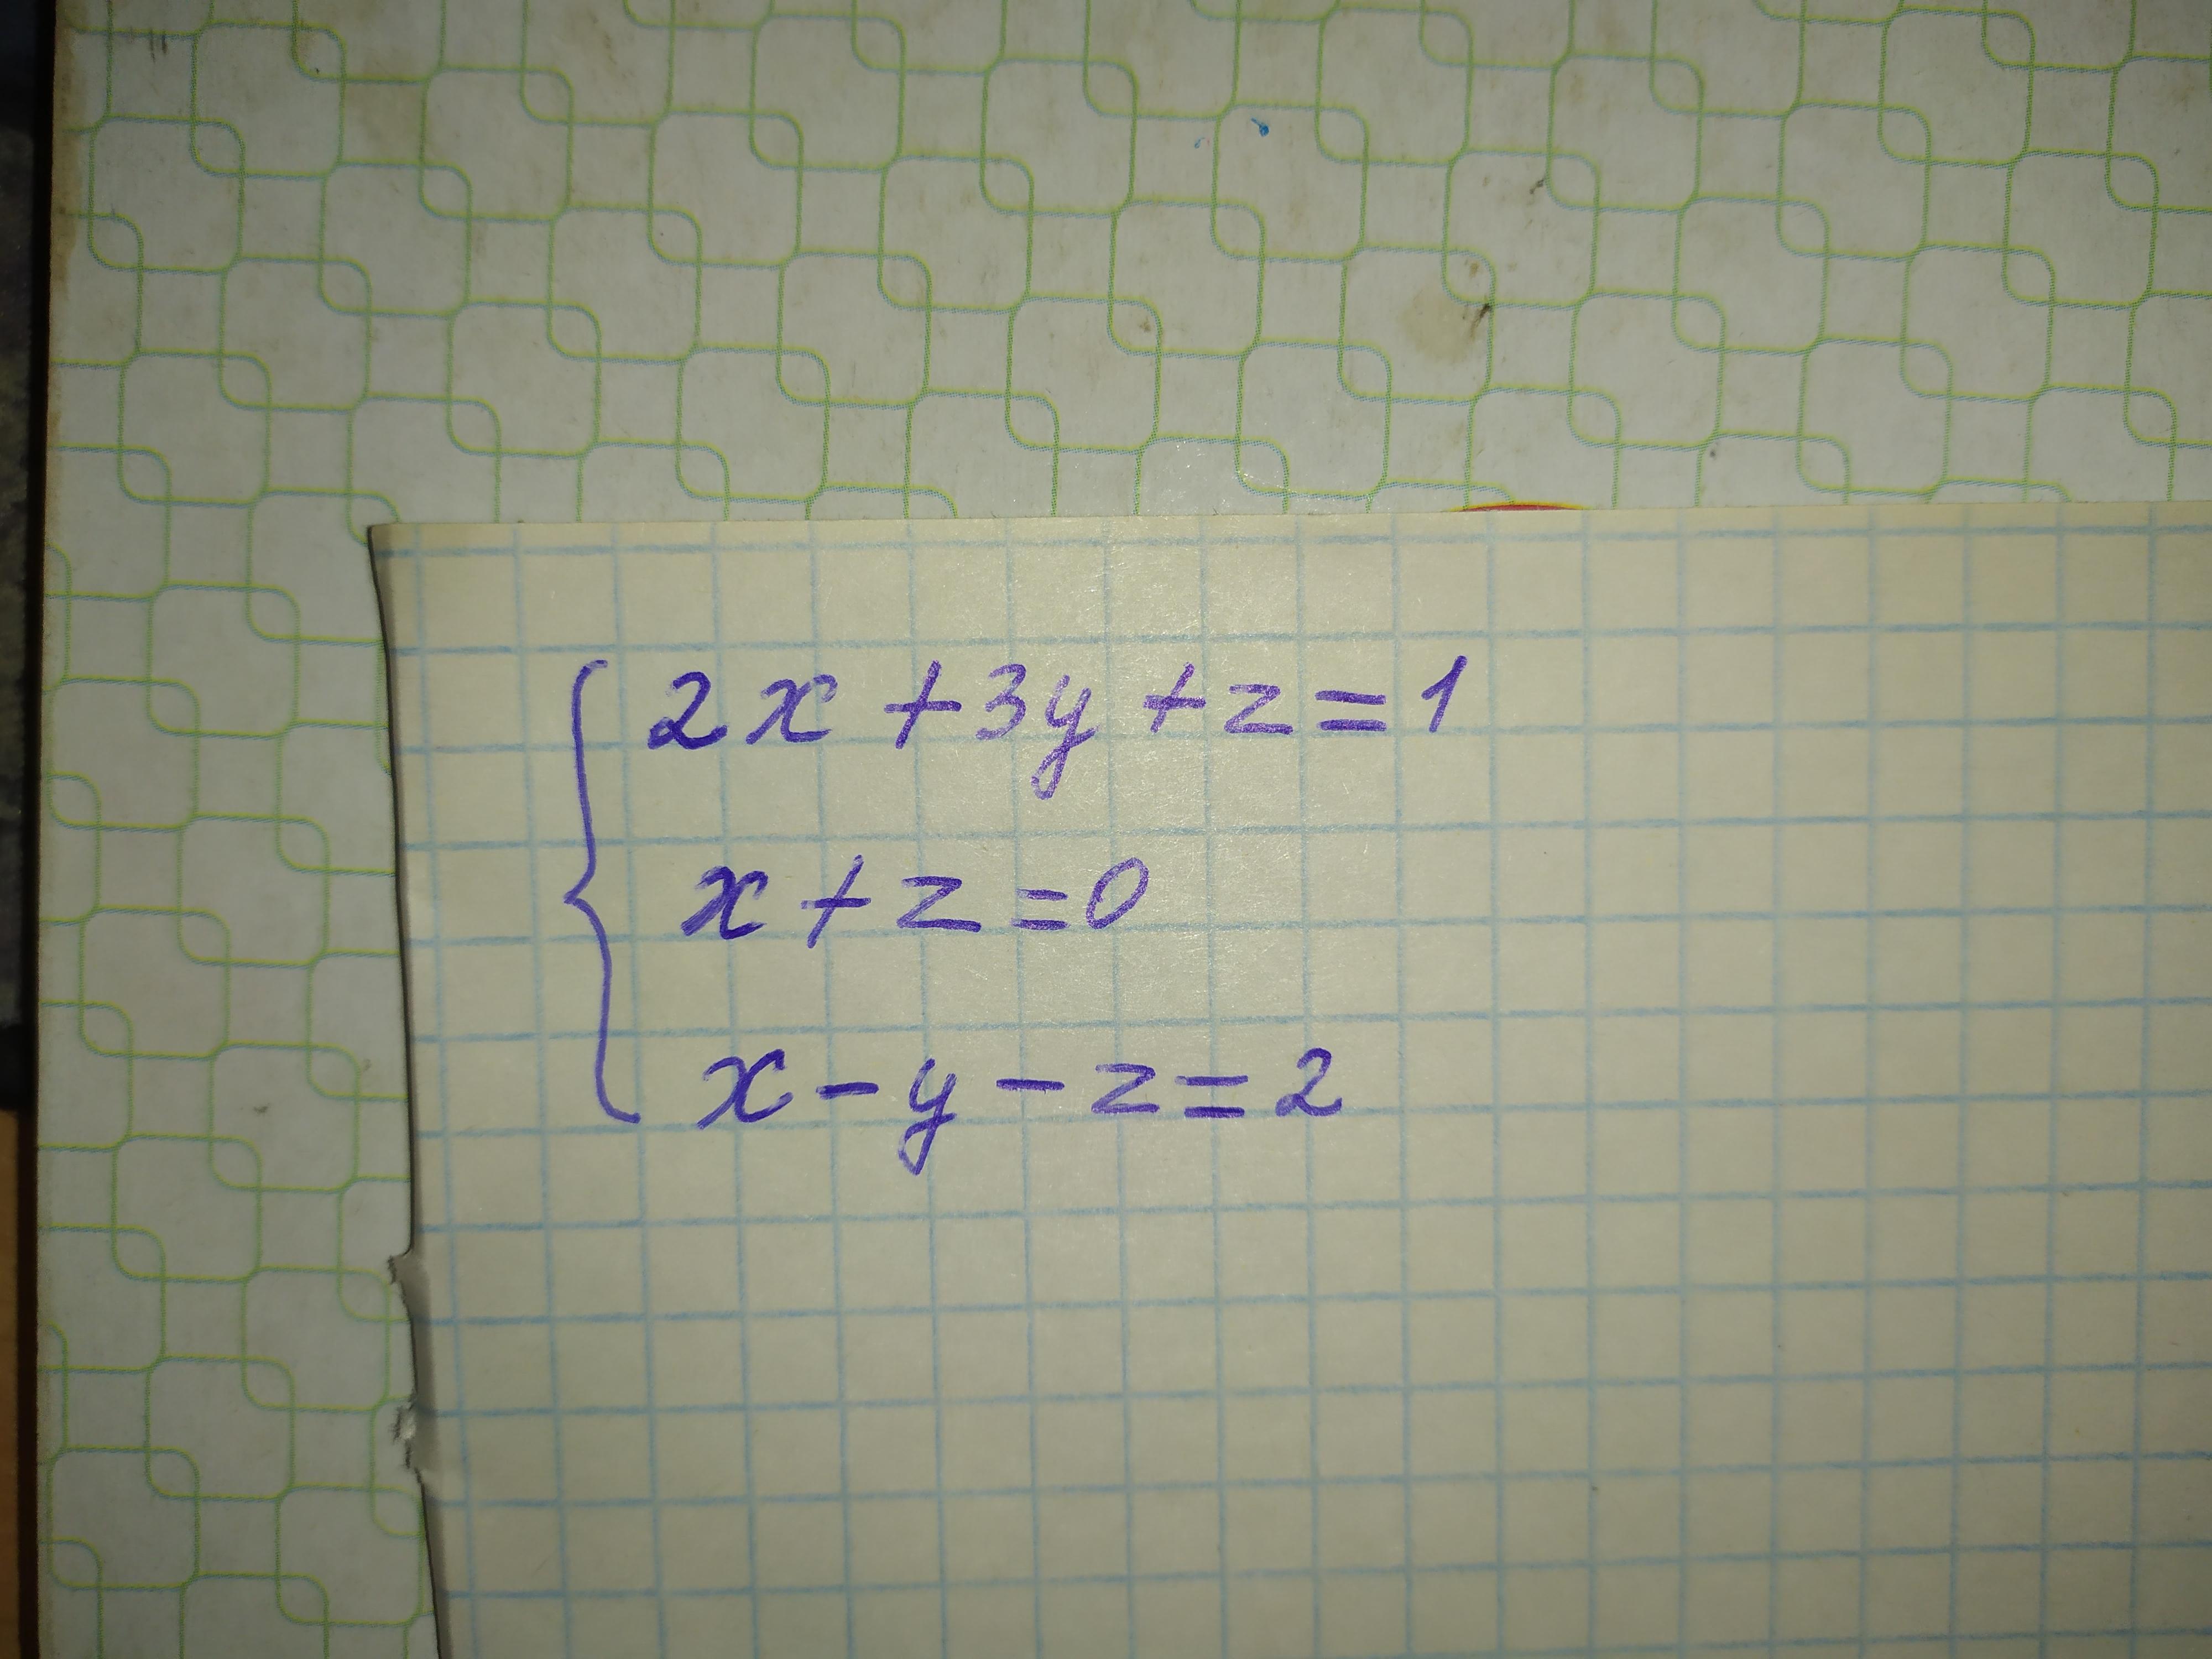 2x+3y+z=1
x+z=0
x-y-z=2